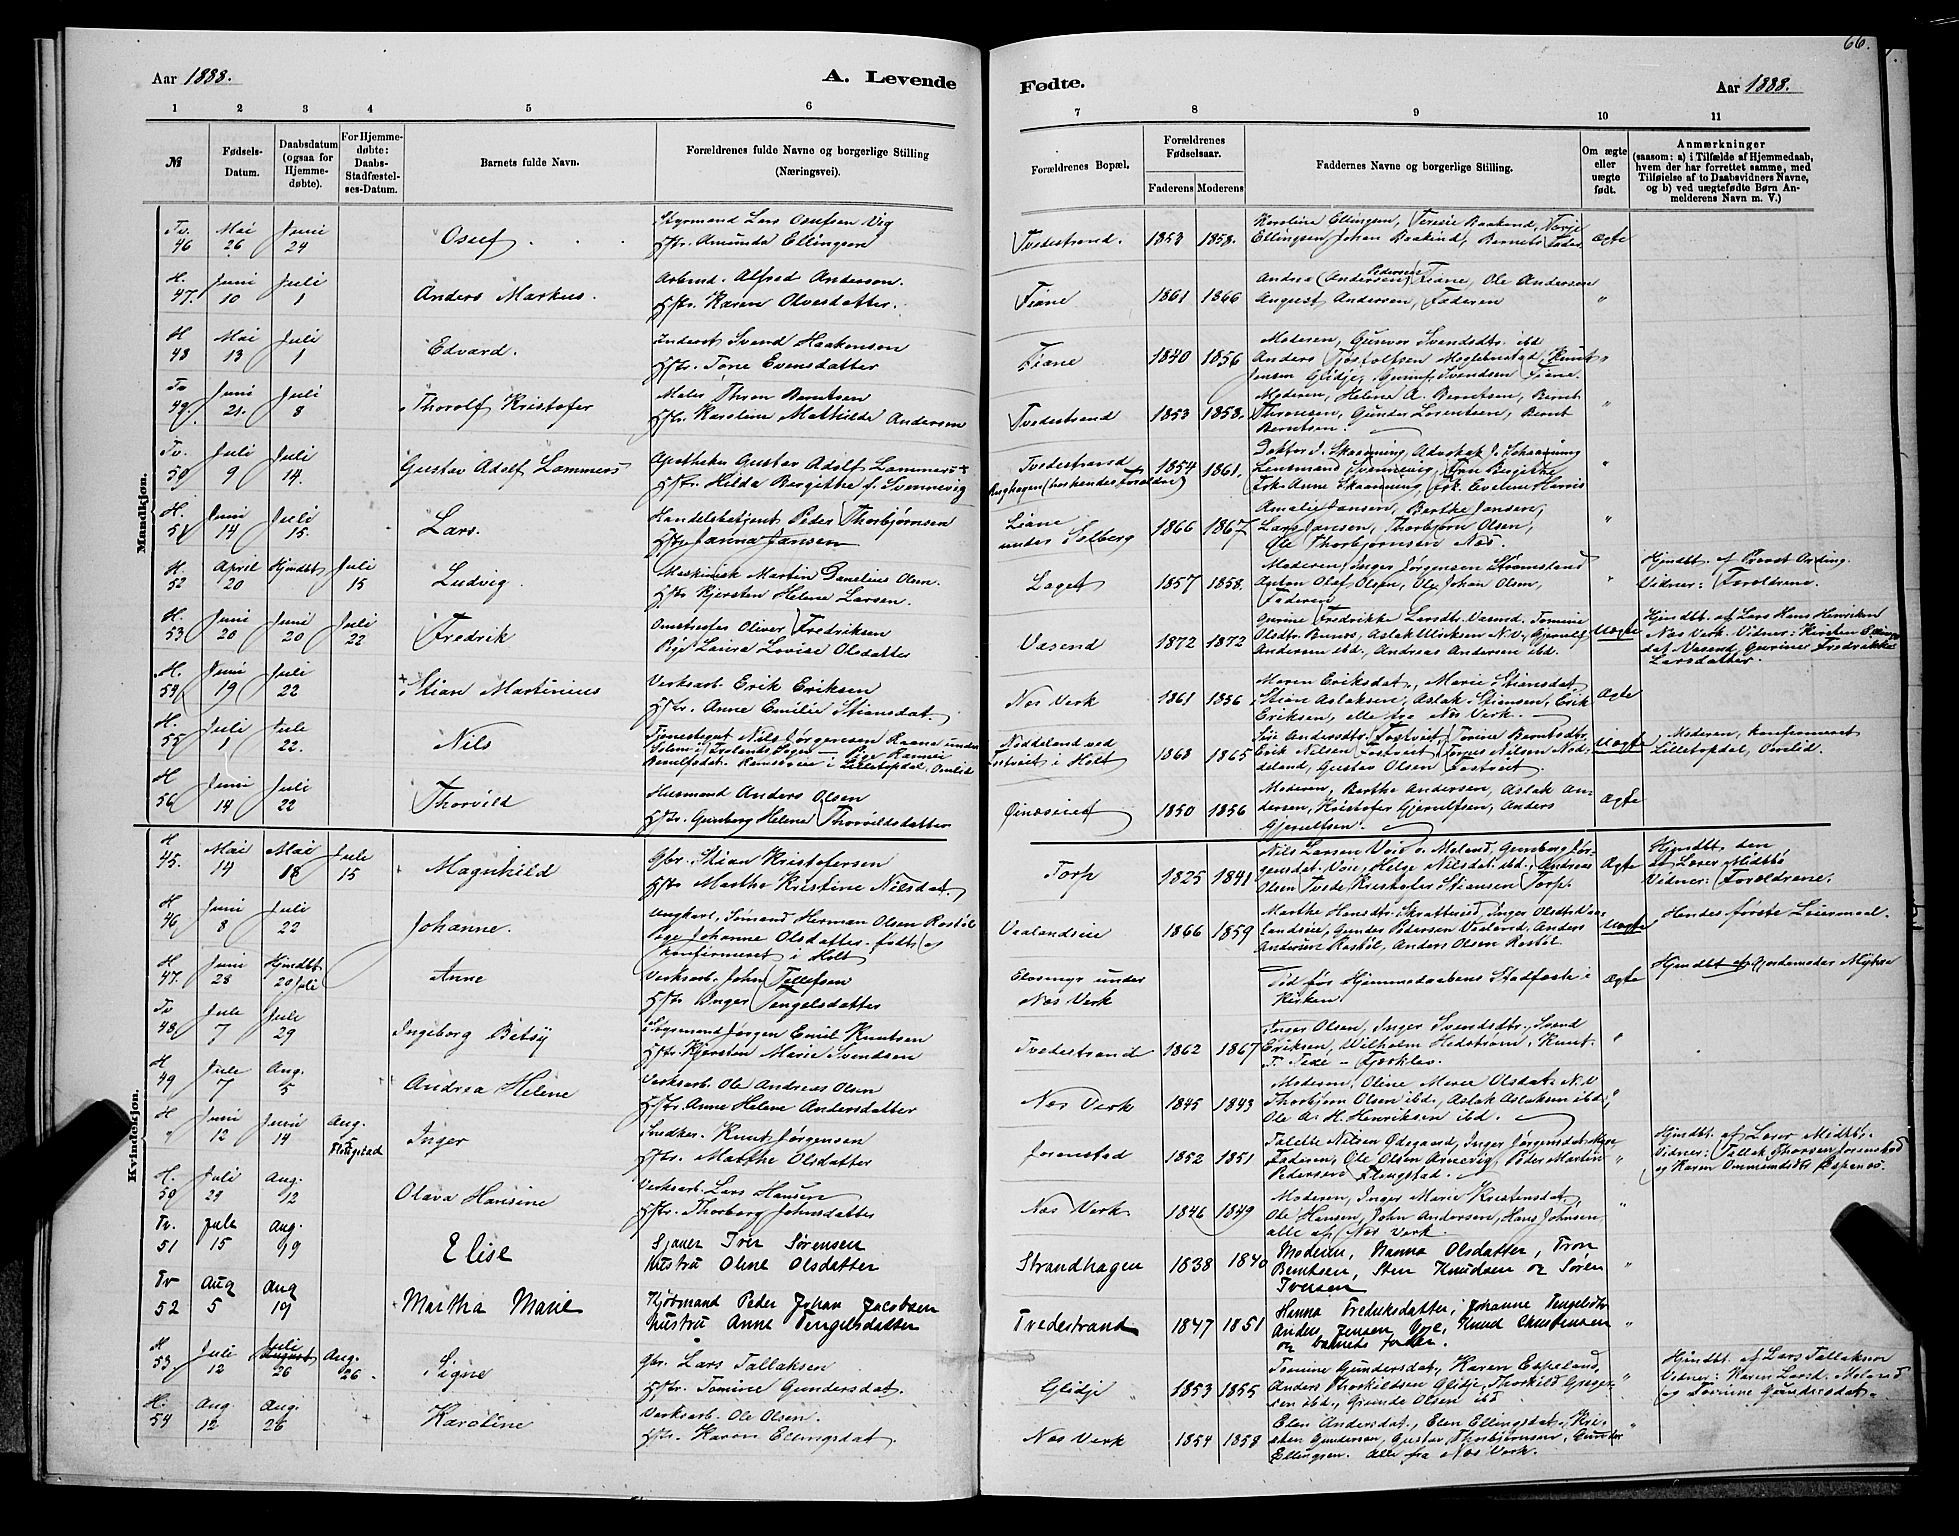 66.
Aar 1888.
A. Levende
Fødte.
Aar 1888.
1 2 3 4 5 6 7 8 9 10 11
№
Fødsels-
Datum.
Daabsdatum
(ogsaa for
Hjemme-
døbte).
For Hjemme-
døbte:
Daabs-
Stadfæstel-
ses-Datum.
Barnets fulde Navn.
Forældrenes fulde Navne og borgerlige Stilling
(Næringsvei).
Forældrenes Bopæl.
Forældrenes
Fødselsaar.
Faderens Moderens
Faddernes Navne og borgerlige Stilling.
Om ægte
eller
uægte
født.
Anmærkninger
(saasom: a) i Tilfælde af Hjemmedaab,
hvem der har forrettet samme, med
Tilføielse af to Daabsvidners Navne,
og b) ved uægtefødte Børn An-
melderens Navn m. V.)
Mandkjøn.
Tv. 46 Mai 26 Juni 24
Osuf
Styrmand Lars Osufsen Vig
Hstr. Amunda Ellingsen
Tvedestrand. 1853 1858.
Karoline Ellingsen, Teresie Baakind,
Ellingsen, Johan Baakind, Barnets Fader
Ægte
H. 47. Juni 10 Juli 1
Anders Markus.
Arbmd. Alfred Anderson.
Hstr. Karen Olvesdatter.
Fiane 1861 1866
Andrea (Andersen) Pedersen Fiane, Ole Andersen
August Andersen, Faderen
"
H 48 Mai 13 Juli 1
Edvard.
Svend Haakonsen
Hstr. Tone Evensdatter
Fiane 1840 1856
Moderen, Gunvor Svendsdtr. ibd
Anders Tosfolfsen Moglebustad, Knut
Jensen Glidje, Svendsen Fiane.
"
Tv 49. Juni 21. Juli 8
Thorolf Kristofer
Maler Thron Berntsen
Hstr. Karoline Mathilde Andersen
Tvedestrand 1853 1858.
Moderen, Helene A. Berntsen, Bernt
Thronsen, Gunder Lorentsen, Bernt
Berntsen.
"
Tv. 50 Juli 9 Juli 14.
Gustav Adolf Lammers
Apotheker Gustav Adolf Lammers +
Hstr. Hilda Bergithe f. Svennevig
Tvedestrand 1854 1861.
Doktor J. Skaanning, Advokat J. Schanning
Lensmand Svennevig, Fru Bergitte
Frk. Anne Skaanning, Frk. Eveline Harris
"
H. 51 Juni 14 Juli 15.
Lars.
Handelsbetjent Peder Thorbjørnsen
Hstr. Janna Jansen
Liane
under Solberg 1866 1867
Amalie Jansen, Berthe Jansen,
Lars Jansen, Thorbjørn Olsen,
Ole Thorbjørnsen Næs.
"
H. 52 April 20 Hjmdbt. Juli 15
Ludvig.
Maskinisk Martin Danelius Olsen.
Hstr Kjersten Helene Larsen.
Laget 1857 1858.
Moderen, Inger Jørgensen Strømsland
Anton Olaf Olsen, Ole Johan Olsen,
Faderen
"
Hjmdbt. af Provst Ording.
Vidner: Forældrene.
H. 53 Juni 20 Juni 20 Juli 22
Fredrik
Oliver Fredriksen
Pige Laura Lovise Olsdatter
Vasend 1872 1872
Gurine Fredrikke Larsdtr. Vasend, Tomine
Olsdtr. Aslak Olviksen N.V., Gjerulf
Andersen ibd., Andreas Andersen ibd.
Uægte
Hjmdbt. af Lars Hans Henriksen
Næs Verk. Vidner: Kirsten Ellings
dat. Vasend, Gurine Fredrikke
Larsdatter.
H. 54 Juni 19 Juli 22
Stian Martinius
Verksarb. Erik Eriksen
Hstr. Anne Emilie Stiansdat.
Næs Verk 1861 1856
Maren Eriksdat., Marie Stiansdat
Stian Aslaksen, Aslak Stiansen, Erik
Eriksen, alle fra Næs Verk.
Ægte
H 55 Juli 1 Juli 22.
Nils
Tjenestegut Nils Jørgensen Raane under
1868 1865
Nøddeland ved
Fostveit i Holt
Erik Nilsen Fostveit, Tomas Nilsen Nød-
deland, Gustav Olsen Fostveit.
Uægte
Moderen, konfirmeret
H 56 Juni 14 Juli 22
Thorvild
Husmand Anders Olsen
Hstr. Gunborg Helene Thorvildsdatter
1850 1856
Moderen, Berthe Andersen, Aslak An-
dersen, Kristofer Gjerulfsen, Anders
Gjerulfsen.
Ægte
Kvindekjøn.
H 45. Mai 14 Mai 18 Juli 15
Magnhild
Gbr. Stian Kristofersen
Hstr Marthe Kristine Nilsdat.
Torp 1825 1841
Nils Larsen Voie v. Meland, Gunborg Jør-
gensdat. Voie, Helge Nilsdat ibd., Andreas
Olsen Tvede, Kristofer Stiansen Torp.
Ægte
Hjmdbt. den
af Lærer Midtbø
Vidner: Forældrene.
H 46 Juni 8 Juli 22
Johanne.
Ungkarl, Sømand Herman Olsen Rostøl
Pige Johanne Olsdatter født og
konfirmeret i Holt
Vaalandseie 1866 1859
Marthe Hansdtr. Skratteried, Inger Olsdtr Vaa-
landseie, Gunder Pedersen Valand, Anders
Andersen Rostøl, Anders Olsen Rostøl.
Uægte
Hendes første Leiermaal.
H 47. Juni 28 Hjmdbt 20 Juli
Anne
Verksarb. John Tellefsen
Hstr Anger Tengelsdatter
under
Næs Verk
Død før Hjemmedaabens Stadfæste i
Kirken.
Ægte
Hjmdbt af Gjordemoder
Tv 48. Juli 7 Juli 29
Ingeborg Betsy
Styrmand Jørgen Emil Knutsen
Hstr. Kjersten Marie Svendsen
Tvedestrand 1862 1867
Inger Olsen, Inger Svendsdtr., Svend
Eriksen, Wilhelm Hedstrøm, Knut
"
H 49 Juli 7 Aug. 5
Andrea Helene
Verksarb. Ole Andreas Olsen
Hstr. Anne Helene Andersdatter
Næs Verk 1845 1843
Moderen, Oline Maree Olsdat. N.V
Thorbjørn Olsen ibd., Aslak Aslaksen ibd.
Ole A. H. Henriksen ibd.
"
H " Juni 12 Juni 14 Aug. 5 Flougstad
Inger
Snedker. Knut Jørgensen
Hstr. Marthe Olsdatter
Jorenstad 1852 1851
Talette Nilsen Ødegaard, Inger Jørgensdat.
Faderen, Ole Olsen Arnevig, Peder Martin
Pedersen Flougstad.
"
Hjmdbt. af Lærer Midtbø.
Vidner: Tallak Thorsen Jorenstad
og Karen Ommundsdtr. Espenes.
H. 50 Juli 29 Aug. 12
Olava Hansine
Verksarb. Lars Hansen
Hstr. Thorborg Johnsdatter
Næs Verk. 1846 1849
Moderen, Inger Marie Kristensdat.
Ole Hansen, John Andersen, Hans Johnsen,
alle af Næs Verk.
"
Tv. 51 Jule 15 Aug. 19
Elise
Sjauer Iver Sørensen
Hustru Oline Olsdatter
Strandhagen 1838 1840
Moderen, Nanna Olsdatter, Tron
Berntsen, Sten Knudsen og Søren
Iversen
"
Tv 52 Aug 5 Aug 19
Martha Marie
Kjøbmand Peder Johan Jacobsen
Hustru Anne Tengelsdatter
Tvedestrand 1847 1851
Hanna Fredriksdatter, Johanne Tengelsdtr
Anders Jensen Voie, Knud Christensen
og barnets fader.
"
H 53 Juli 12 Juli 26 Aug. 26
Signe
Gbr. Lars Tallaksen
Hstr. Tomine Gundersdat.
Glidje 1853 1855
Tomine Gundersdat, Karen Espeland,
Anders Thorkildsen Glidje, Thorkild
sen ibd., Gunde Olsen ibd
"
Hjmdbt. af Lars Tallaksen
Vidner: Karen Meland
og Tomine Gundersdat.
H. 54 Aug. 12 Aug. 26
Karoline
Verksarb. Ole Olsen.
Hstr. Karen Ellingsdat.
Næs Verk 1854 1858
Elen Andersdat., Elen Ellingsdat., Kri-
sten Gundersen, Gustav Thorbjørnsen, Gunder
Ellingsen. Alle fra Næs Verk.
"